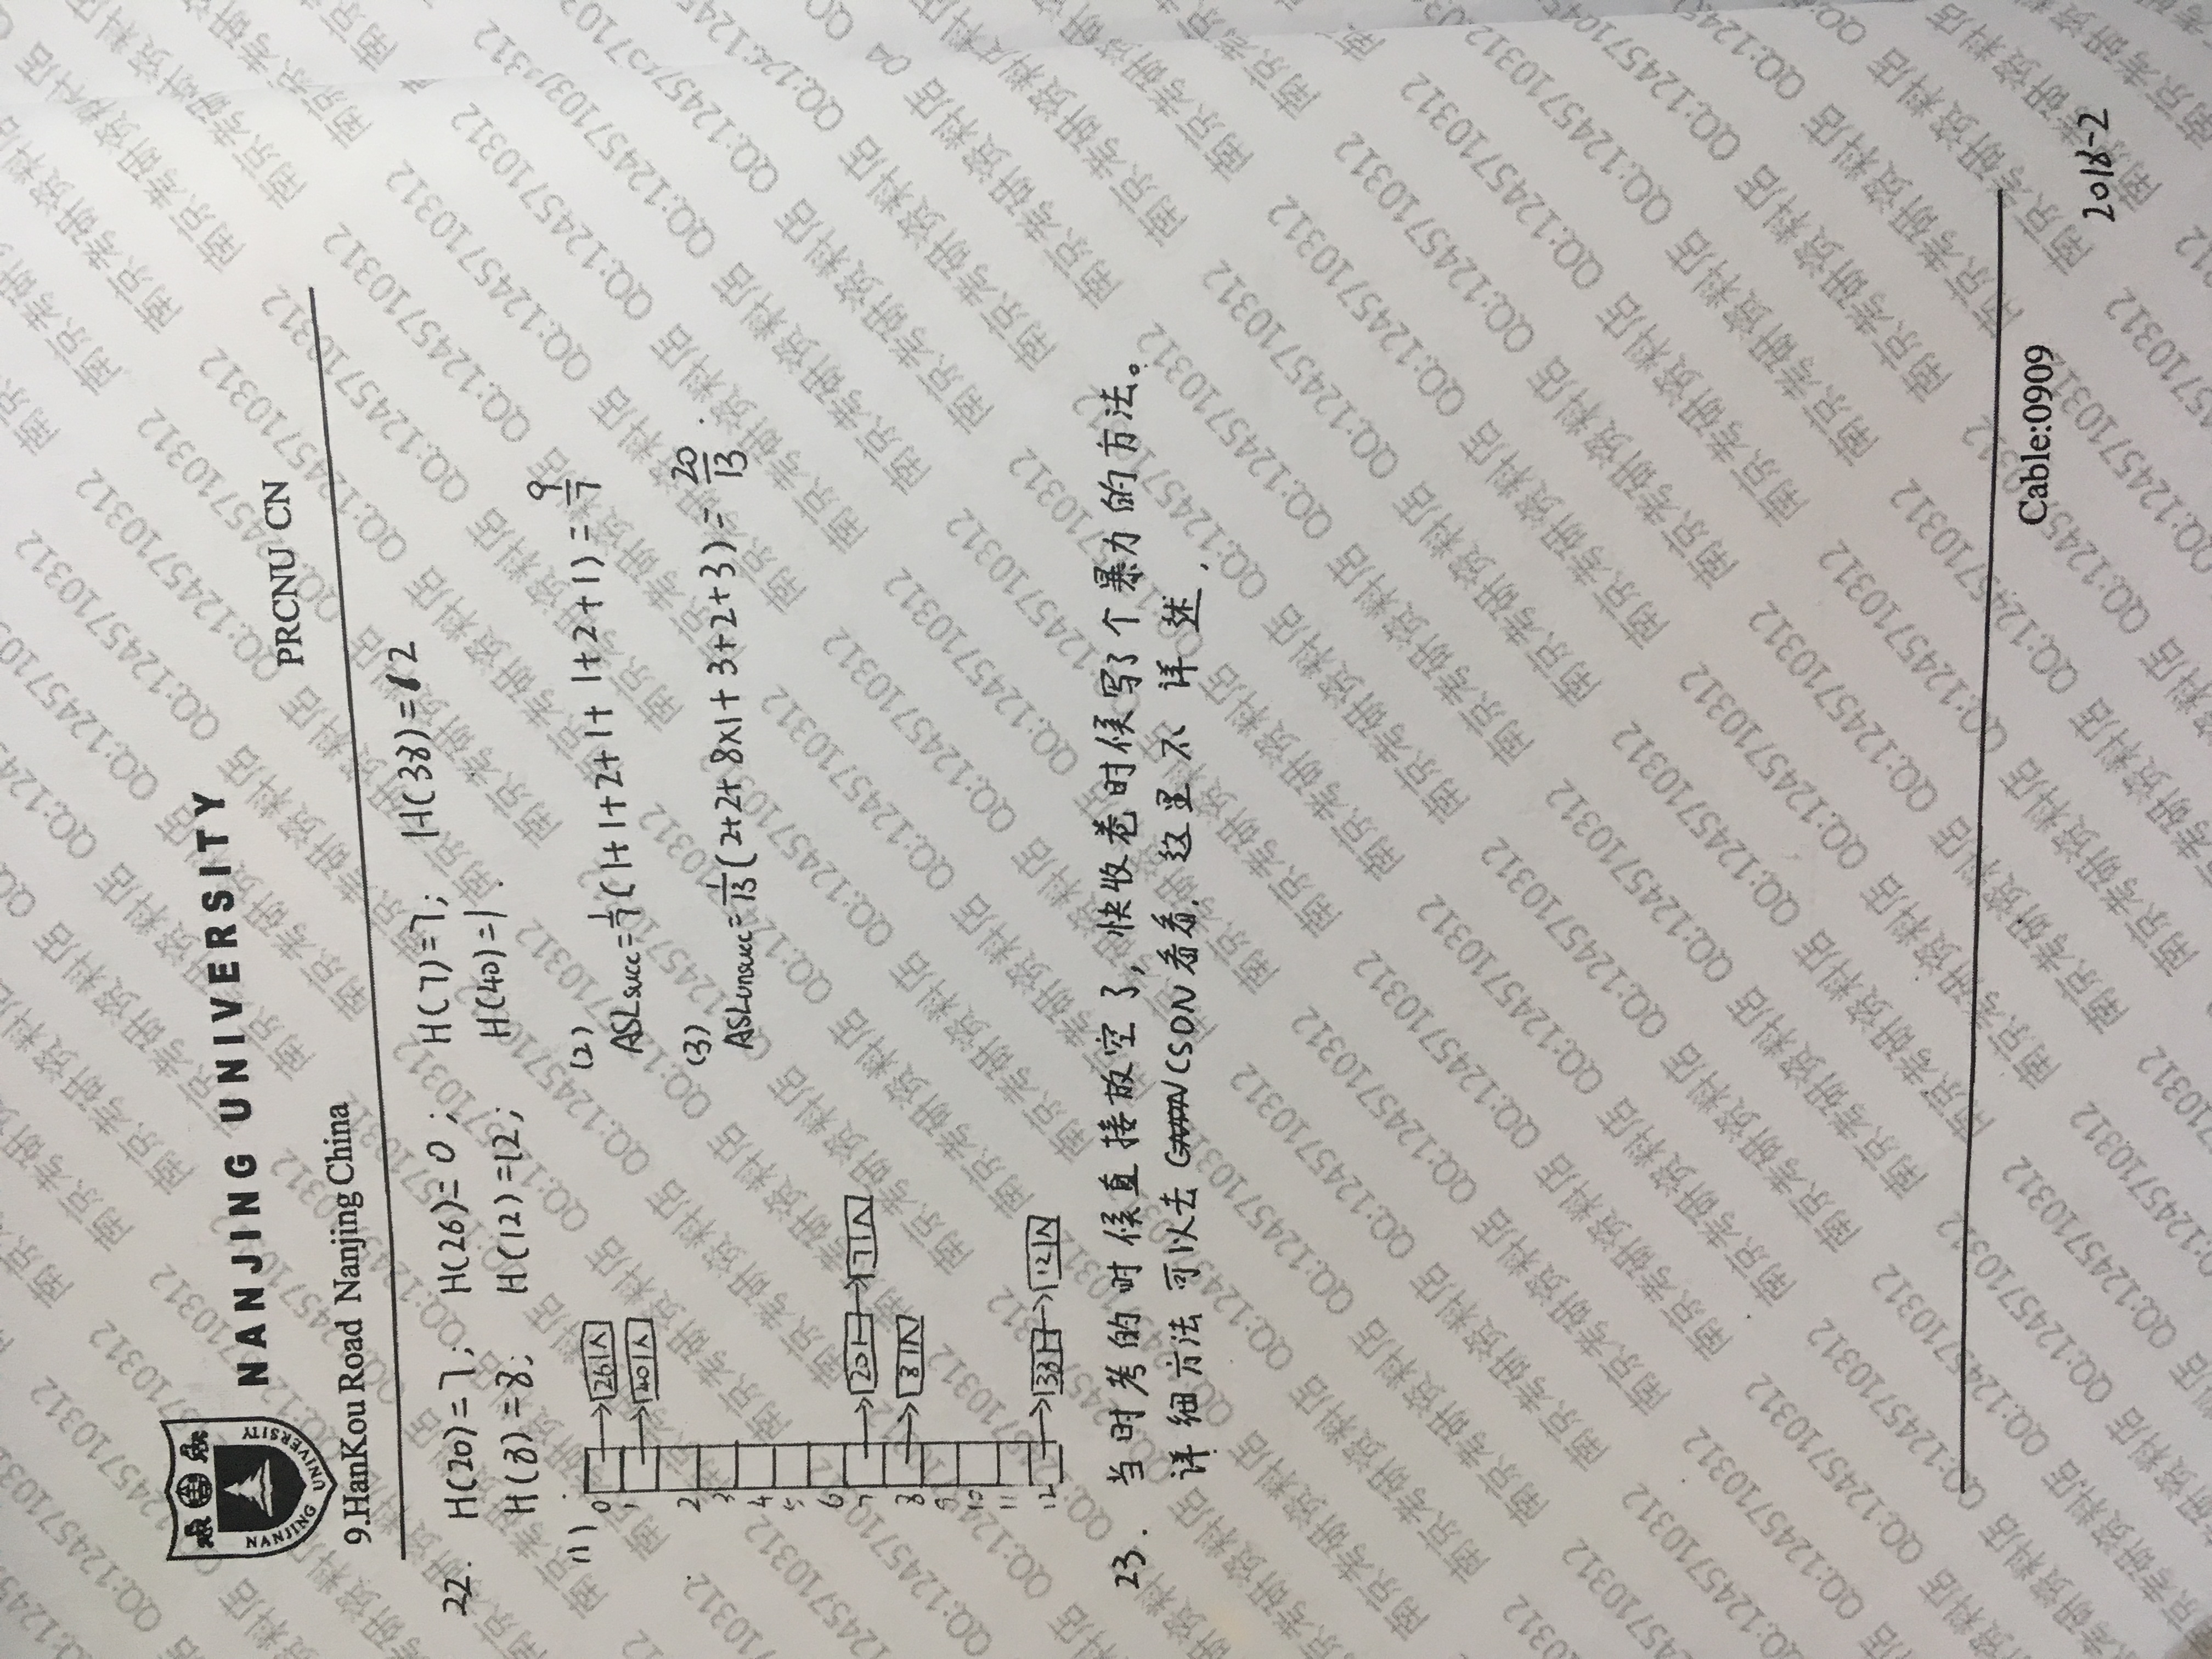 NANJING UNIVERSITY
NANJING UNIVERSITY
PRCNU CN
9.HanKou Road Nanjing China
22. H(20)=7; H(26)=0; H(7)=7; H(38)=12
H(8)=8; H(12)=12; H(40)=1.
(1)
0 26 ∧
1 40 ∧
2
3
4
5
6
7 20 7 ∧
8 8 ∧
9
10
11
12 38 12 ∧
(2)
ASLsucc=1/7(1+1+2+1+1+2+1)=9/7
(3)
ASLunsucc=1/13(2+2+8×1+3+2+3)=20/13.
23. 当时考的时候直接放空了,快收卷时候写了个暴力的方法。
详细方法可以去CSDN看看,这里不详述.
Cable:0909
2018-2
南京考研资料店 QQ:1245710312